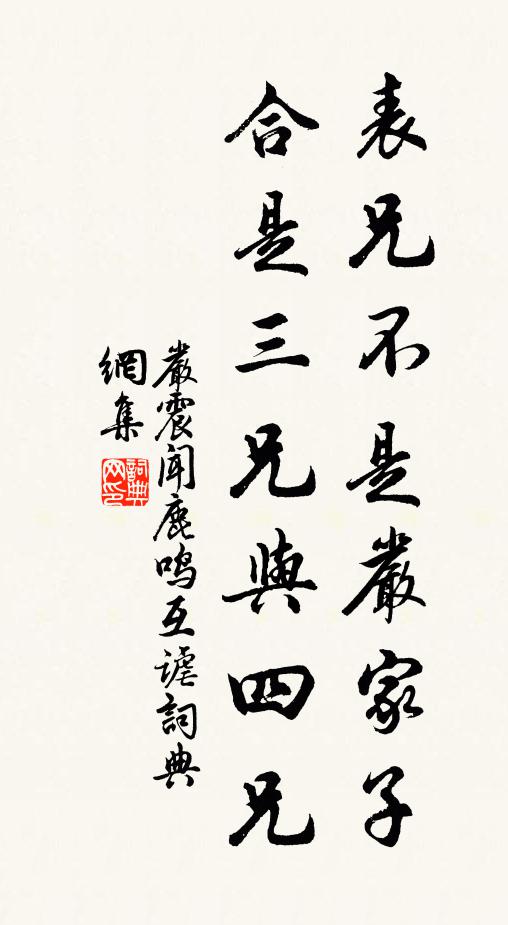 表兄不是嚴家子
合是三兄與四兄
嚴震聞鹿鳴互謔詞典
網集
詞典網印